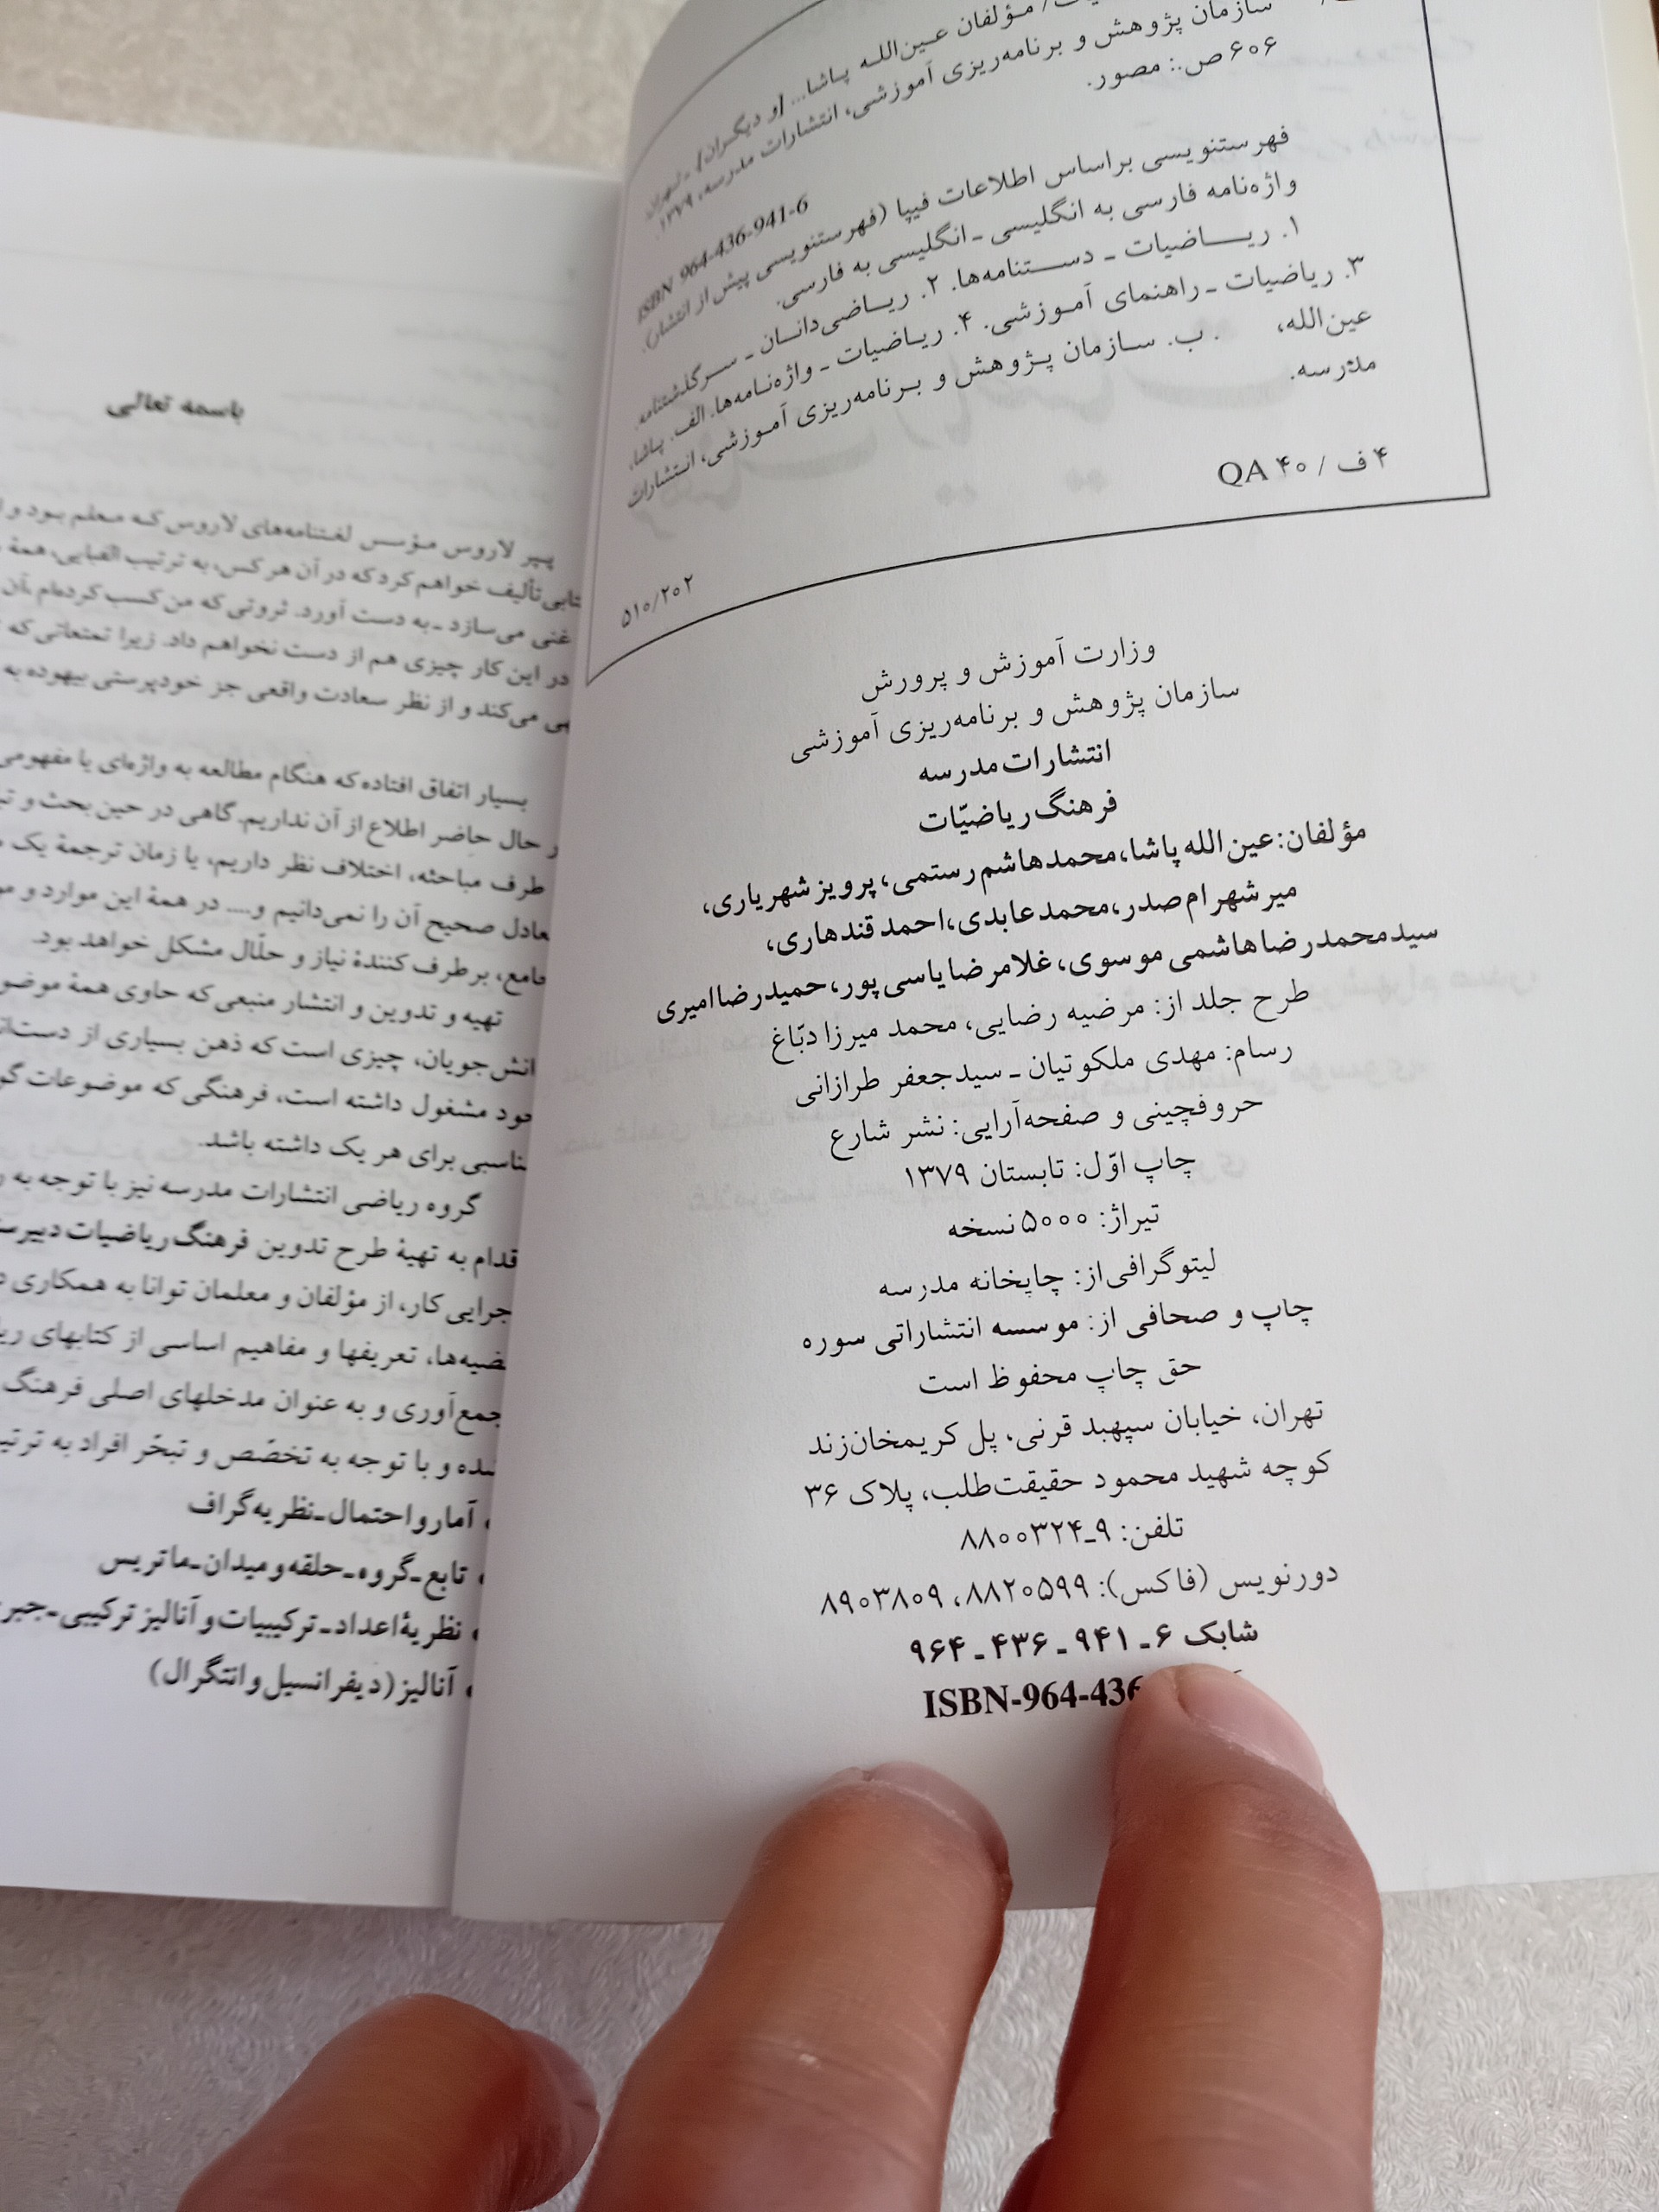 مؤلفان عین‌اللـه پـاشا... [و دیگـران]. ـ تهران:
سازمان پژوهش و برنامه‌ریزی آموزشی، انتشارات مدرسه، ۱۳۷۹.
۶۰۶ ص.: مصور.
ISBN 964-436-941-6
فهرستنویسی براساس اطلاعات فیپا (فهرستنویسی پیش از انتشار).
واژه‌نامه فارسی به انگلیسی ـ انگلیسی به فارسی.
۱. ریـــاضیات ـ دســتنامه‌ها. ۲. ریـاضی‌دانـان ـ سـرگذشتنامه.
۳. ریاضیات ـ راهنمای آمـوزشی. ۴. ریـاضیات ـ واژه‌نـامه‌ها. الف. پـاشا،
عین‌الله، . ب. سـازمان پـژوهش و بـرنامه‌ریزی آمـوزشی، انـتشارات
مدرسه.
۴ ف / ۴۰ QA
۵۱۰/۲۰۲
وزارت آموزش و پرورش
سازمان پژوهش و برنامه‌ریزی آموزشی
انتشارات مدرسه
فرهنگ ریاضیّات
مؤلفان: عین الله پاشا، محمدهاشم رستمی، پرویز شهریاری،
میرشهرام صدر، محمد عابدی، احمد قندهاری،
سیدمحمدرضا هاشمی موسوی، غلامرضا یاسی پور، حمیدرضا امیری
طرح جلد از: مرضیه رضایی، محمد میرزا دبّاغ
رسام: مهدی ملکوتیان ـ سیدجعفر طرازانی
حروفچینی و صفحه‌آرایی: نشر شارع
چاپ اوّل: تابستان ۱۳۷۹
تیراژ: ۵۰۰۰ نسخه
لیتوگرافی از: چاپخانه مدرسه
چاپ و صحافی از: موسسه انتشاراتی سوره
حق چاپ محفوظ است
تهران، خیابان سپهبد قرنی، پل کریمخان‌زند
کوچه شهید محمود حقیقت‌طلب، پلاک ۳۶
تلفن: ۹ـ۸۸۰۰۳۲۴
دورنویس (فاکس): ۸۸۲۰۵۹۹، ۸۹۰۳۸۰۹
شابک ۶ ـ ۹۴۱ ـ ۴۳۶ ـ ۹۶۴
ISBN-964-436
باسمه تعالی
پـیر لاروس مـؤسس لغـتنامه‌های لاروس کـه مـعلم بـود و
تألیف خواهم کرد که در آن هر کس، به ترتیب الفبایی، همهٔ
غنی می‌سازد ـ به دست آورد. ثروتی که من کسب کرده‌ام
در این کار چیزی هم از دست نخواهم داد. زیرا تمتعاتی که
می‌کند و از نظر سعادت واقعی جز خودپرستی بیهوده
بسیار اتفاق افتاده که هنگام مطالعه به واژه‌ای یا مفهومی
حال حاضر اطلاع از آن نداریم. گاهی در حین بحث و
طرف مباحثه، اختلاف نظر داریم، یا زمان ترجمهٔ یک
صحیح آن را نمی‌دانیم و.... در همهٔ این موارد و
برطرف کنندهٔ نیاز و حلّال مشکل خواهد بود.
تهیه و تدوین و انتشار منبعی که حاوی همهٔ
چیزی است که ذهن بسیاری از
مشغول داشته است، فرهنگی که موضوعات
برای هر یک داشته باشد.
گروه ریاضی انتشارات مدرسه نیز با توجه به
به تهیهٔ طرح تدوین فرهنگ ریاضیات
کار، از مؤلفان و معلمان توانا به همکاری
تعریفها و مفاهیم اساسی از کتابهای
جمع‌آوری و به عنوان مدخلهای اصلی فرهنگ
و با توجه به تخصّص و تبحّر افراد به
آمار و احتمال ـ نظریه گراف
• تابع ـ گروه ـ حلقه و میدان ـ ماتریس
• نظریهٔ اعداد ـ ترکیبیات و آنالیز ترکیبی ـ جبر
• آنالیز (دیفرانسیل و انتگرال)